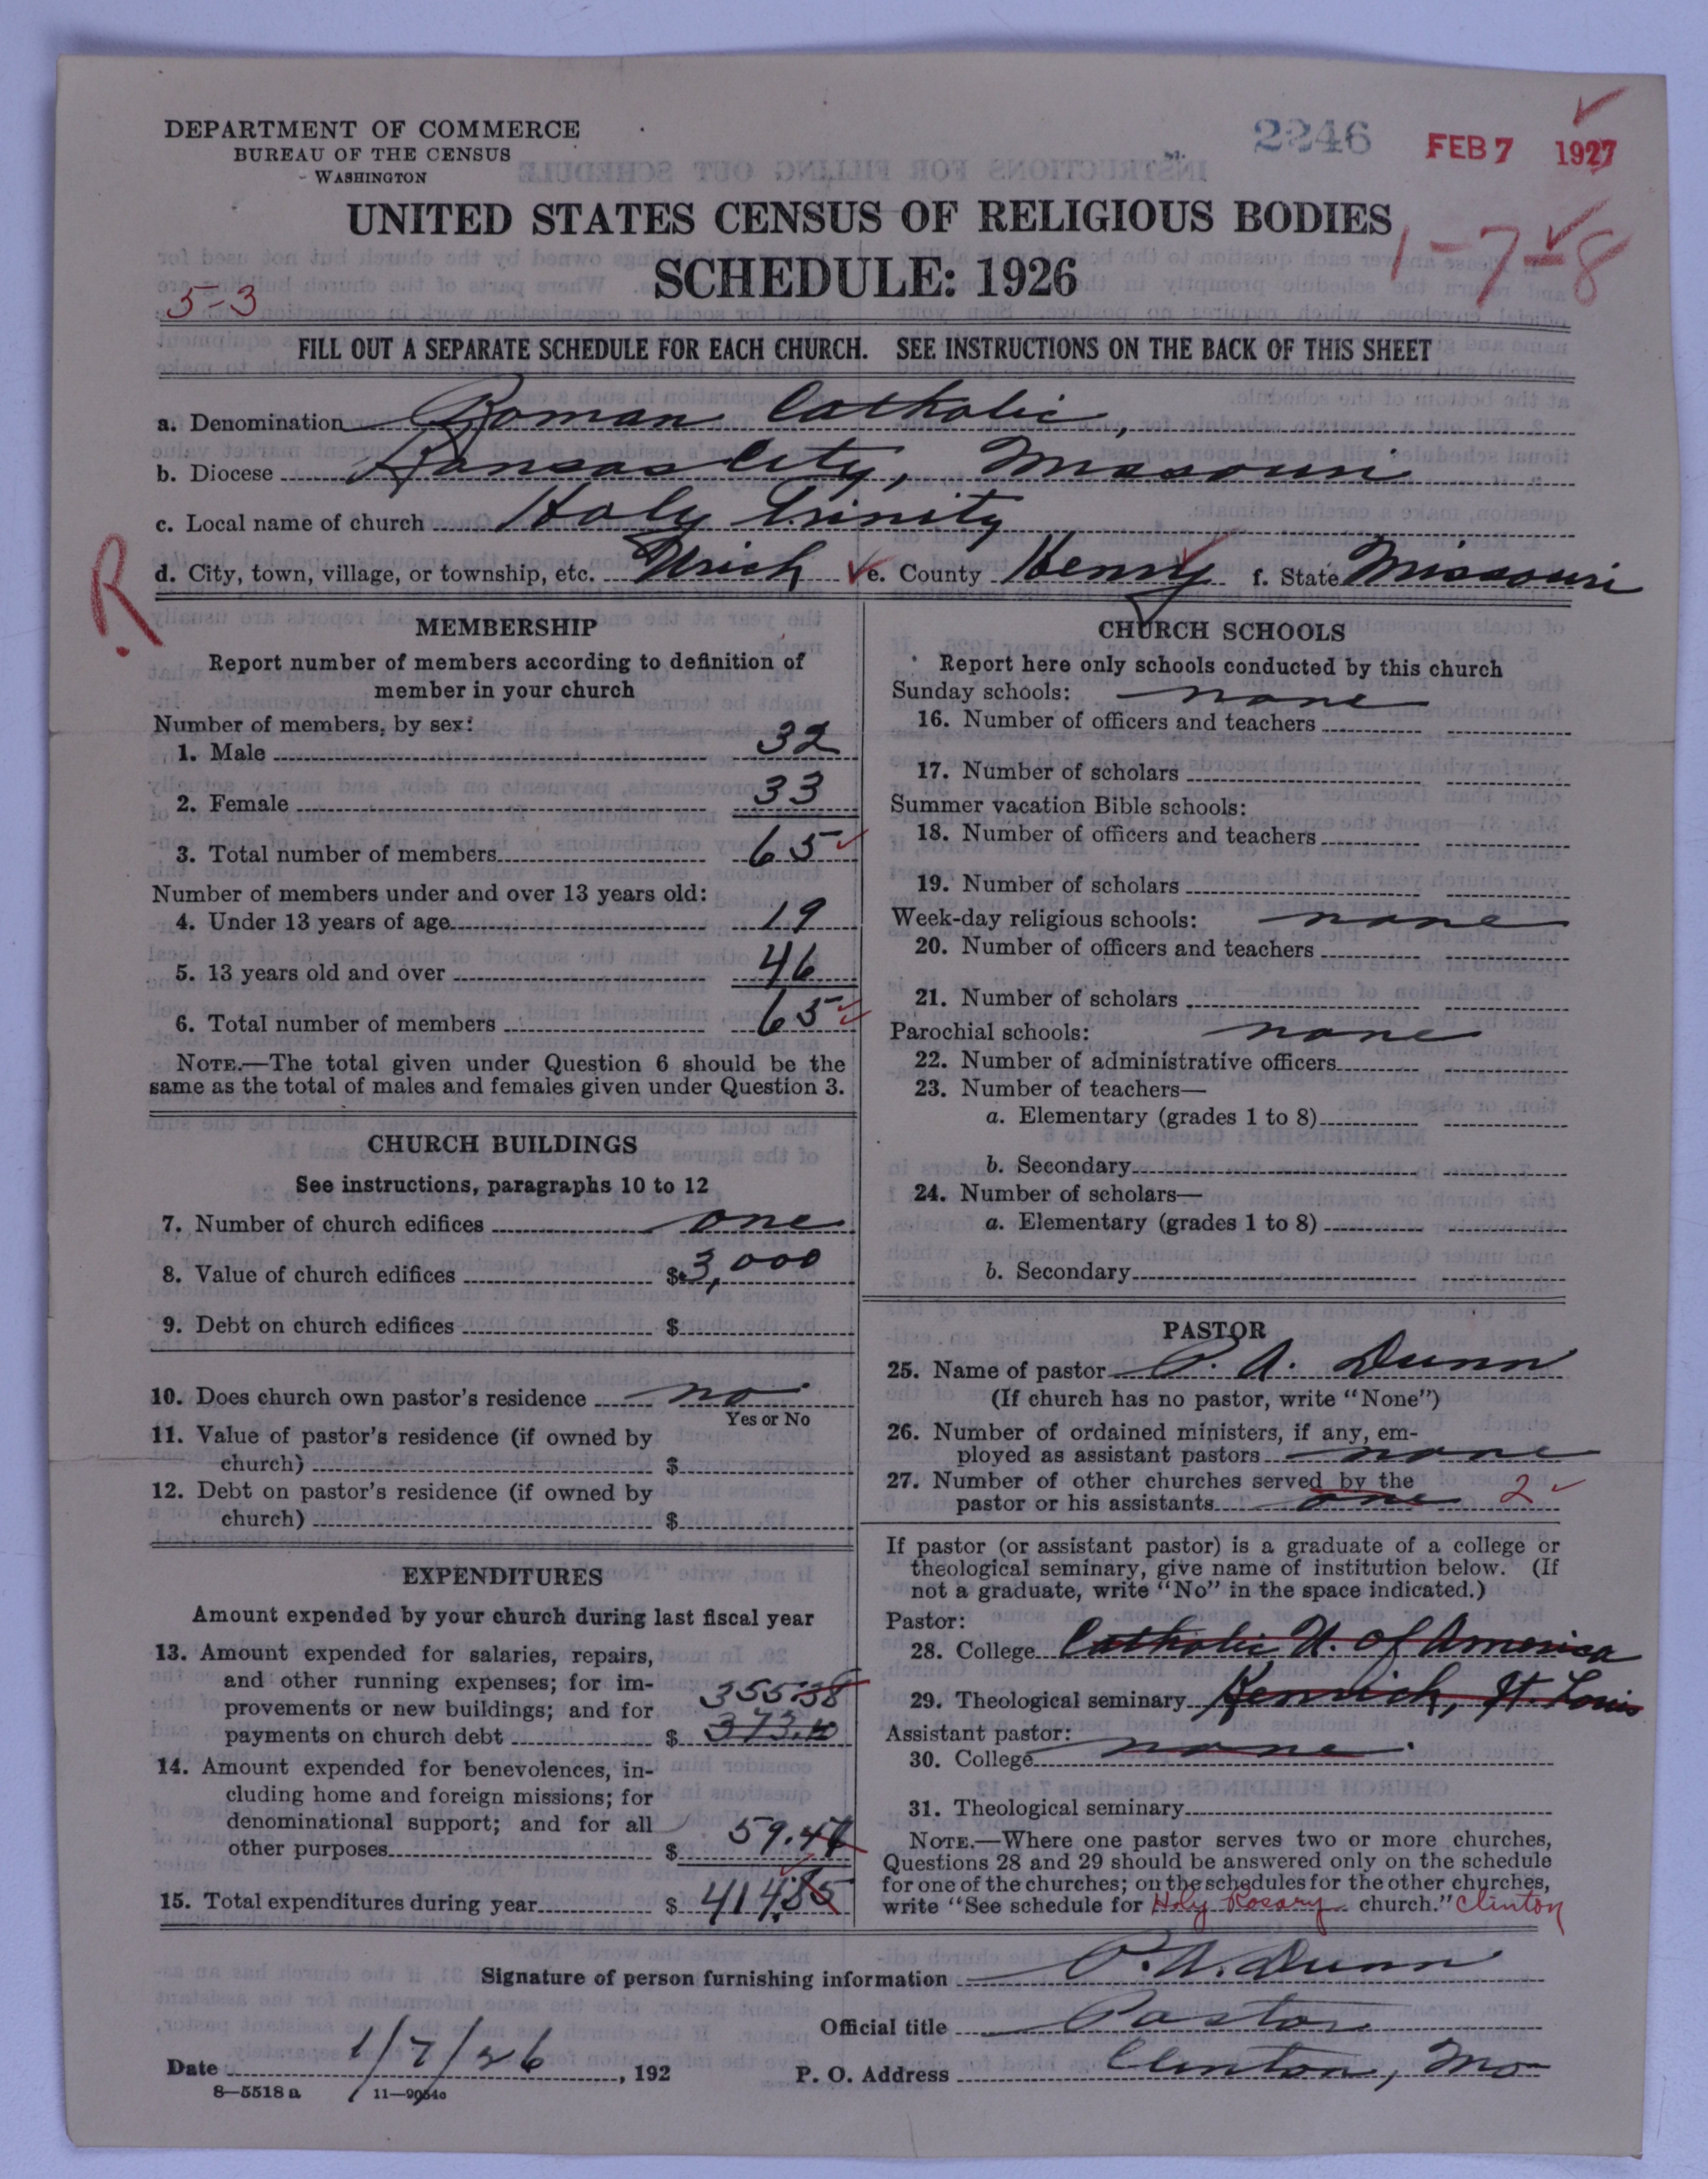 DEPARTMENT OF COMMERCE
BUREAU OF THE CENSUS
WASHINGTON
2246 FEB 7 1927
UNITED STATES CENSUS OF RELIGIOUS BODIES
SCHEDULE: 1926
1-7-8
5-3
FILL OUT A SEPARATE SCHEDULE FOR EACH CHURCH. SEE INSTRUCTIONS ON THE BACK OF THIS SHEET
a. Denomination Roman Catholic,
b. Diocese Kansas City, Missouri
c. Local name of church Holy Trinity
R.
d. City, town, village, or township, etc. Urich e. County Henry f. State Missouri
MEMBERSHIP
Report number of members according to definition of
member in your church
Number of members, by sex:
1. Male 32
2. Female 33
3. Total number of members 65
Number of members under and over 13 years old:
4. Under 13 years of age 19
5. 13 years old and over 46
6. Total number of members 65
NOTE.—The total given under Question 6 should be the
same as the total of males and females given under Question 3.
CHURCH BUILDINGS
See instructions, paragraphs 10 to 12
7. Number of church edifices one
8. Value of church edifices $ 3,000
9. Debt on church edifices $
10. Does church own pastor's residence no
Yes or No
11. Value of pastor's residence (if owned by
church) $
12. Debt on pastor's residence (if owned by
church) $
EXPENDITURES
Amount expended by your church during last fiscal year
13. Amount expended for salaries, repairs,
and other running expenses; for im-
provements or new buildings; and for 355.38
payments on church debt $
14. Amount expended for benevolences, in-
cluding home and foreign missions; for
denominational support; and for all
other purposes $ 59.47
15. Total expenditures during year $ 414.85
CHURCH SCHOOLS
Report here only schools conducted by this church
Sunday schools: none
16. Number of officers and teachers
17. Number of scholars
Summer vacation Bible schools:
18. Number of officers and teachers
19. Number of scholars
Week-day religious schools: none
20. Number of officers and teachers
21. Number of scholars
Parochial schools: none
22. Number of administrative officers
23. Number of teachers—
a. Elementary (grades 1 to 8)
b. Secondary
24. Number of scholars—
a. Elementary (grades 1 to 8)
b. Secondary
PASTOR
25. Name of pastor P. A. Dunn
(If church has no pastor, write "None")
26. Number of ordained ministers, if any, em-
ployed as assistant pastors none
27. Number of other churches served by the
pastor or his assistants one 2
If pastor (or assistant pastor) is a graduate of a college or
theological seminary, give name of institution below. (If
not a graduate, write "No" in the space indicated.)
Pastor:
28. College Catholic U. of America
29. Theological seminary Kenrick, St. Louis
Assistant pastor:
30. College none
31. Theological seminary
NOTE.—Where one pastor serves two or more churches,
Questions 28 and 29 should be answered only on the schedule
for one of the churches; on the schedules for the other churches,
write "See schedule for Holy Rosary church." Clinton
Signature of person furnishing information P. A. Dunn
Official title Pastor
Date 1/7/26, 192 P. O. Address Clinton, Mo
8—5518 a 11—9054c